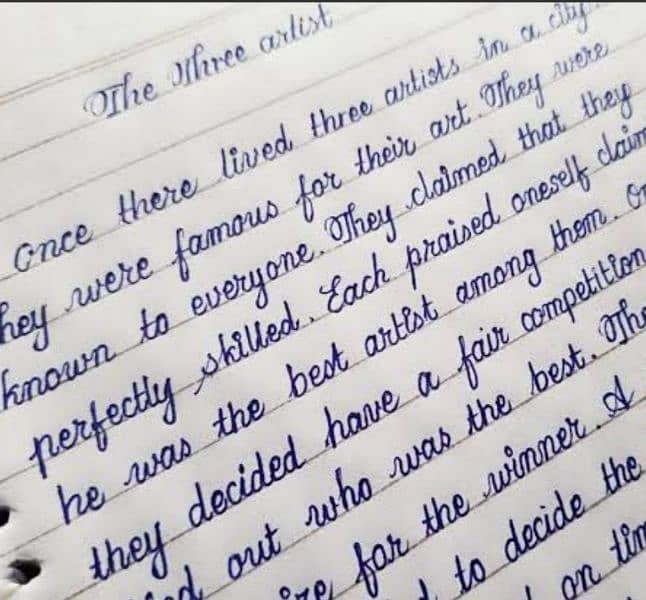 The Three artist
Once there lived three artists in a city
They were famous for their art. They were
known to everyone. They claimed that they
perfectly skilled. Each praised oneself claim
he was the best artist among them.
they decided have a fair competition
out who was the best. The
for the winner. A
to decide the
on tim